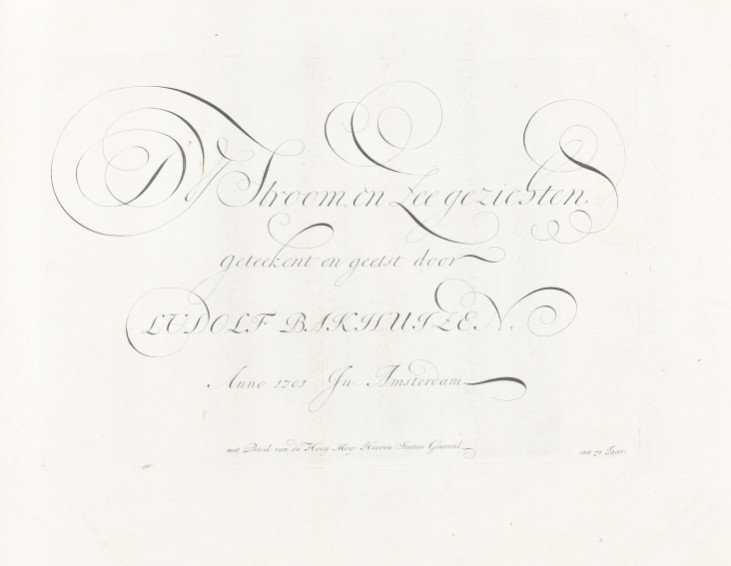 D'Y Stroom, en Zee gezichten.
Geteekent en geëtst door
LUDOLF BAKHUIZEN.
Anno 1701 In Amsterdam
met Previl van de Hoog Mog: Heeren Staten General
out 71 Jaar.